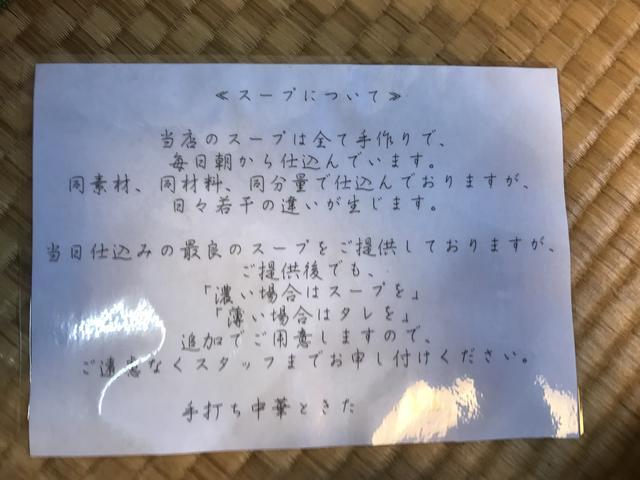 ≪スープについて≫
当店のスープは全て手作りで、
毎日朝から仕込んでいます。
同素材、同材料、同分量で仕込んでおりますが、
日々若干の違いが生じます。
当日仕込みの最良のスープをご提供しておりますが、
ご提供後でも、
「濃い場合はスープを」
「薄い場合はタレを」
追加でご用意しますので、
ご遠慮なくスタッフまでお申し付けください。
手打ち中華ときた